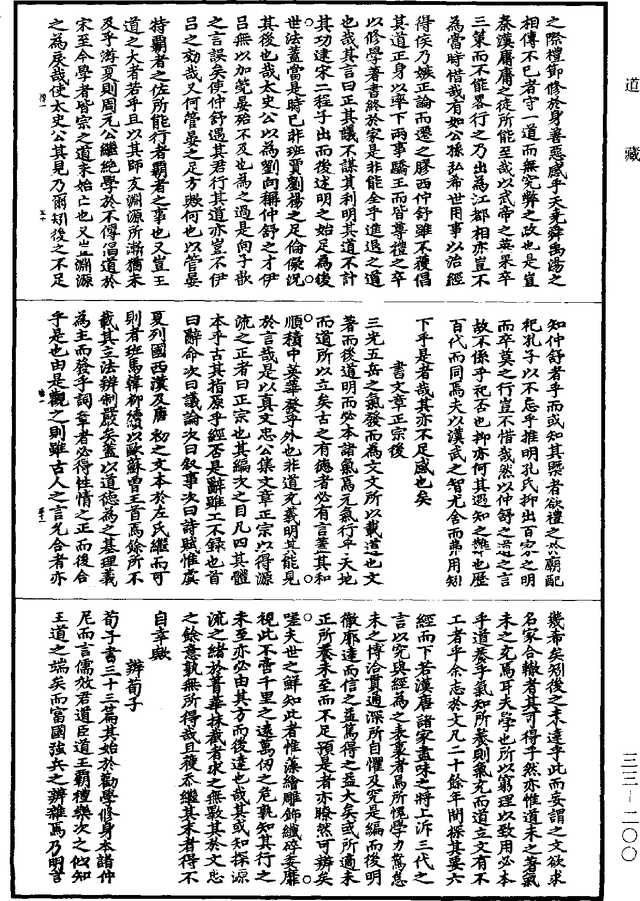 之際禮節修於身善惡感乎天堯舜禹湯之
相傳不已者守一道而無究弊之政也是豈
秦漢庸庸之徒所能至哉以武帝之英果卒
三策而不能畧行之乃出為江都相亦豈不
為當時惜哉有如公孫弘希世用事以治經
得侯乃嫉正論而遷之膠西仲舒雖不獲倡
其道正身以率下兩事驕王而皆尊禮之卒
以修學著書終於家是非能全乎進退之道
也哉其言曰正其議不謀其利明其道不計
其功逮宋二程子出而後述明之始足為後
世法蓋當是時已非班賈劉楊之足倫儗況
其後也哉太史公以為劉向稱仲舒之才伊
呂無以加筦晏殆不及也為之過是向子歆
之言誤矣使仲舒遇其君行其道亦豈不伊
呂之効哉又何管晏之足方歟何也以管晏
特霸者之佐所能行者霸者之事也又豈王
道之大者若乎且以其師友淵源所漸猶未
及乎游夏則周元公繼絕學於不傳倡道於
宋至今學者皆宗之道未始亡也又豈淵源
之為戾哉使太史公其見乃爾矧後之不足
知仲舒者乎而或知其槩者欲禮之於廟配
祀孔子以不忘乎推明孔氏抑出百家之明
而卒莫之行豈不惜哉然以仲舒之道之言
故不係乎祀否也抑亦何其遇知之難也歷
百代而同焉夫以漢武之智尤舍而弗用矧
下乎是者哉其亦不足感也矣
書文章正宗後
三光五岳之氣發而為文文所以載道也文
著而後道明而必本諸氣焉元氣行乎天地
而道所以立矣古之有德者必有言蓋其和
順積中英華發乎外也非道充義明其能見
於言哉是以真文忠公集文章正宗以得源
流之正者曰正宗也其編次之目凡四其體
本乎古其指原乎經否是辭雖工不録也首
曰辭命次曰議論次曰敘事次曰詩賦惟虞
夏列國西漢及唐初之文本於左氏繼而可
則者班馬韓柳德以歐蘇曾王首焉餘所不
載其立法辨制嚴矣蓋以道德為之基理義
為主而發乎詞章者必得性情之正而後合
乎是也由是觀之則雖古人之言允合者亦
幾希矣矧後之未達乎此而妄謂之文欲求
名家合轍者其可得乎然亦惟道未之著氣
未之充焉耳夫學也所以窮理以致用必本
乎道養乎氣知所養則氣充而道立文有不
工者乎余志於文凡二十餘年間探其要六
經而下若漢唐諸家盡味之將上泝三代之
言以究與經為之表裏者焉所愧學力駑怠
未之博洽貫通深所自懼及究是編而後明
徹耶達而信之益篤得之益大矣或所適未
正所養未至而不足預是者亦瞭然可辨矣
嗟夫世之鮮知此者惟藻繪雕飾纖碎委靡
視此不啻千里之遠萬仞之危孰知其行之
未至亦必由其方而後達也哉其或知探源
流之緒於菁華抹裁者求之無斁其於文忠
之餘意孰無所得哉且複忝繼其末者得不
自幸歟
辨荀子
荀子書三十三篇其始於勸學修身本諸仲
尼而言儒效君道臣道王霸禮樂次之似知
王道之端矣而富國強兵之辨雜焉乃明言
道藏
三三—二〇〇